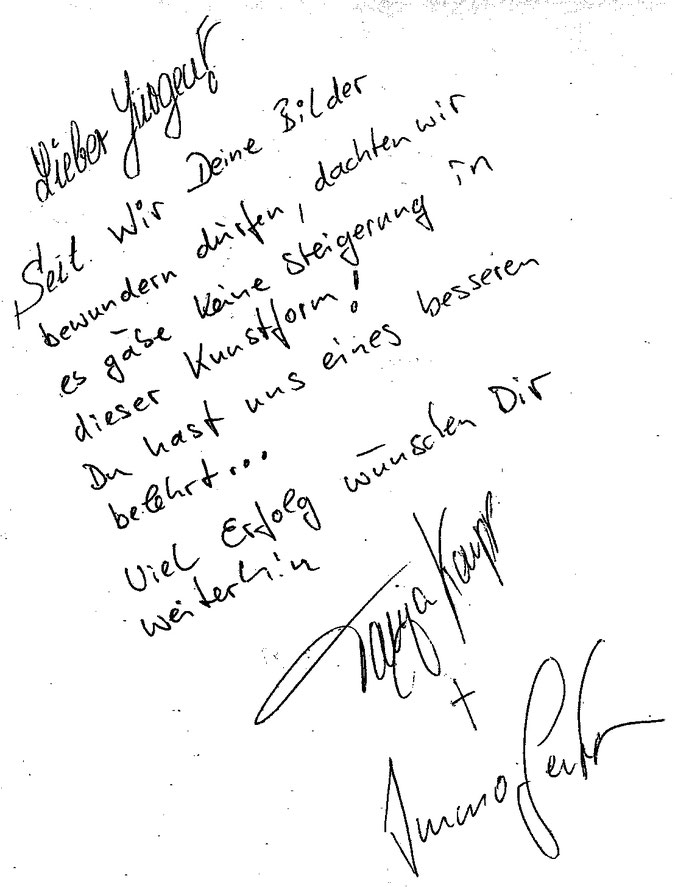 Lieber Jürgen!
Seit wir Deine Bilder
bewundern dürfen, dachten wir
es gäbe keine Steigerung in
dieser Kunstform!
Du hast uns eines besseren
belehrt...
Viel Erfolg wünschen Dir
weiterhin
Tanja Kaupp
+
Immo